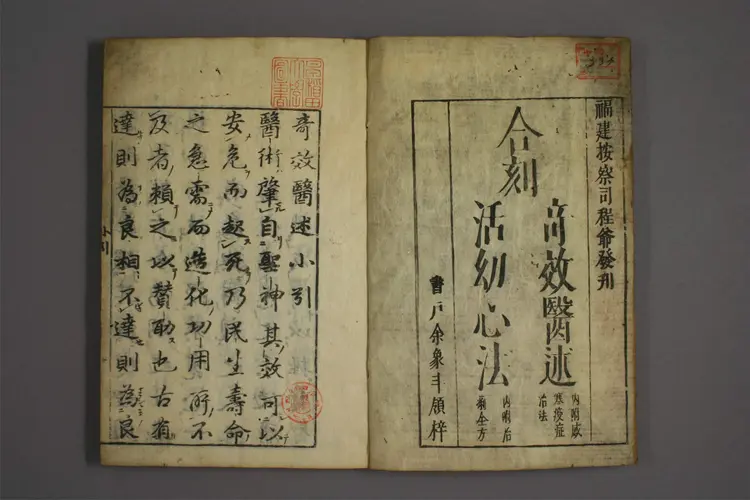 福建按察司程爺發刊
合刻
奇效醫述
內附感
寒疫症
治法
活幼心法
內附痘
書戶余象斗領梓
奇效醫述小引
醫術肇自聖神其效可以
安危而起死乃民生壽命
之急需而造化功用所不
及者賴之以贊助也古稱
達則為良相不達則為良
小引